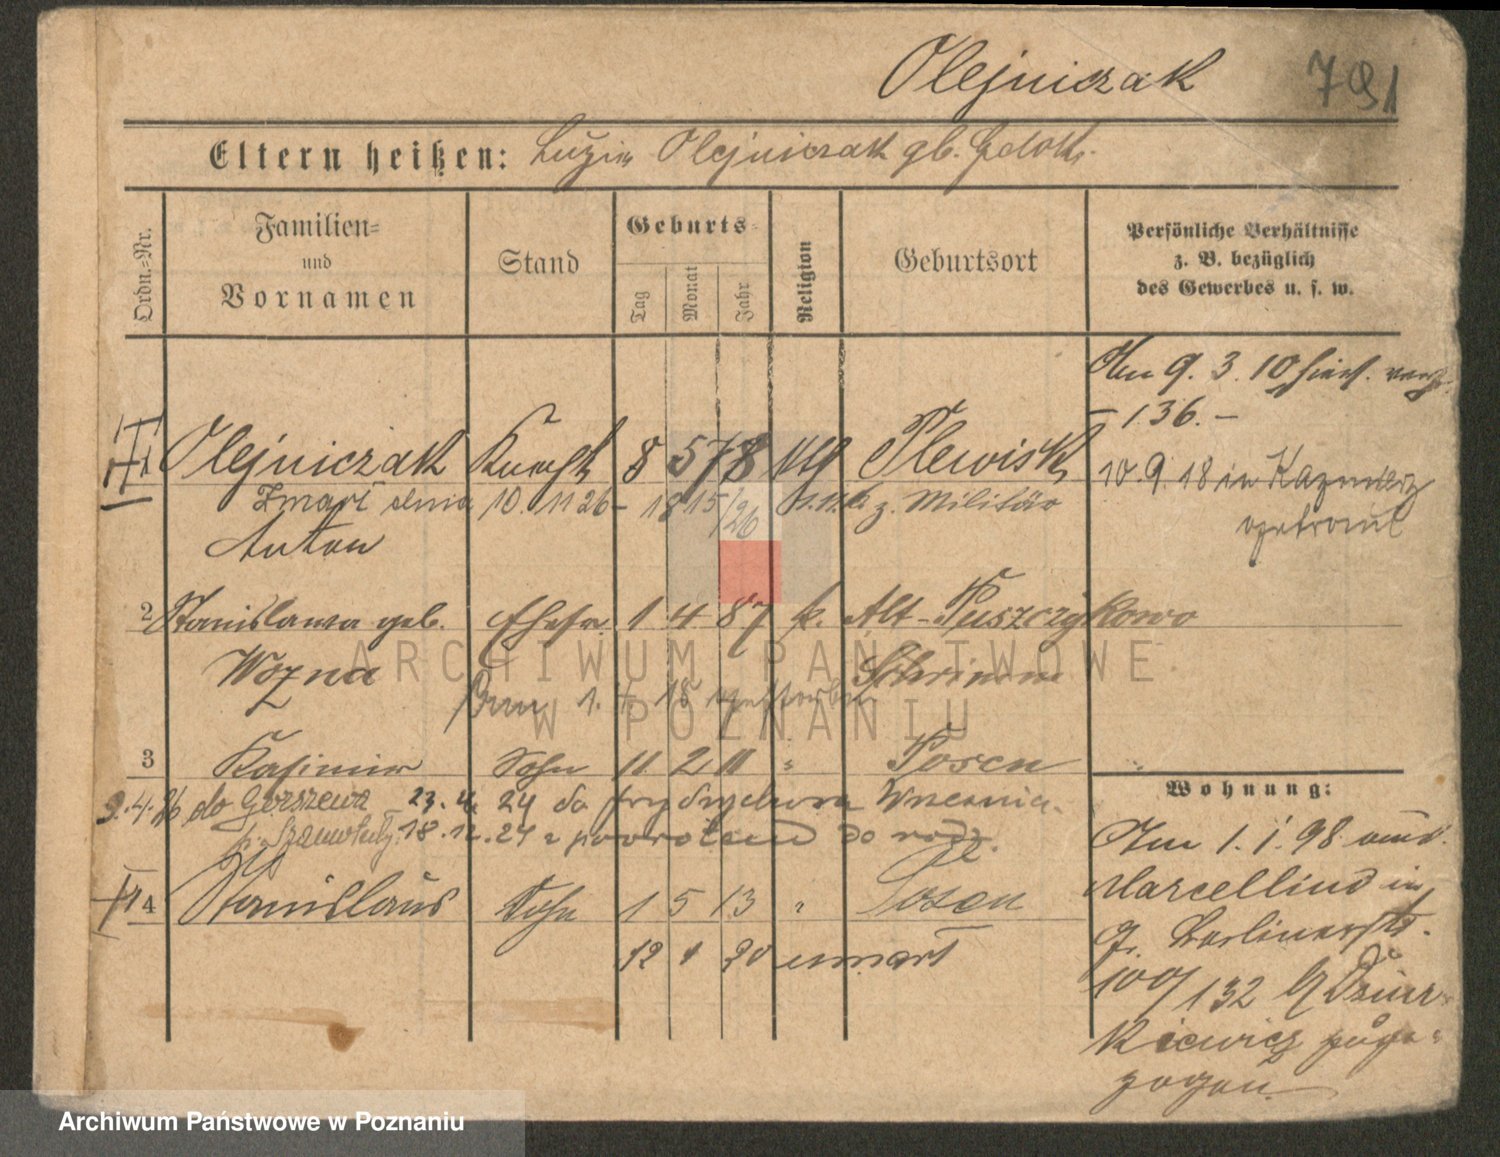 Olejniczak 791
Eltern heißen: Luzia Olejniczak gb.
Ordn.-Nr.
Familien- und Vornamen
Stand
Geburts-
Tag
Monat
Jahr
Religion
Geburtsort
Persönliche Verhältnisse
z. B. bezüglich
des Gewerbes u. s. w.
Am 9. 3. 10 hierh.
– 136. –
1 Olejniczak Knecht 8 5 78 Plewisk
10. 9. 18 in
Zmarł dnia 10. 11 26 – 18 15/26 z. Militär
Anton
2 Stanislawa geb. Ehefr. 1 4 87 k. Alt-Puszczykowo
Wozna Schrimm
1. 4. 18
3 Kasimir Sohn 11 2 11 " Posen
9.4.26 do Gorszewa 23. 4. 24 do
p. Szamotuły 18. 12. 24 z powrotem do rodz.
Wohnung:
Am 1. 1. 98 aus
Marcellino in
4 Stanislaus Sohn 1 5 13 " Posen
gr. Berlinerstr.
12 1 20 umarł
100/132
zogen.
ARCHIWUM PAŃSTWOWE
W POZNANIU
Archiwum Państwowe w Poznaniu